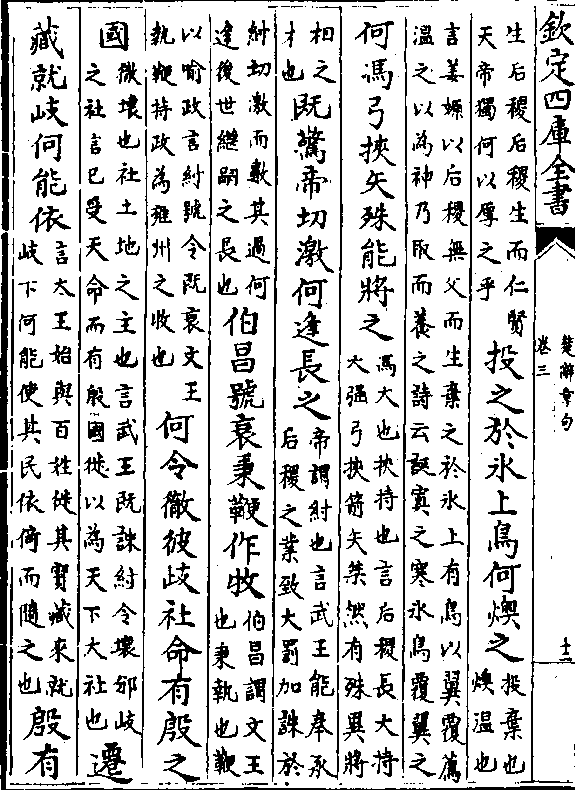 欽定四庫全書
楚辭章句
卷三
十二
生后稷后稷生而仁賢
天帝獨何以厚之乎
投之於氷上鳥何燠之
投棄也
燠溫也
言姜嫄以后稷無父而生棄之於氷上有鳥以翼覆薦
溫之以為神乃取而養之詩云誕寘之寒氷鳥覆翼之
何馮弓挾矢殊能將之
馮大也挾持也言后稷長大持
大强弓挾箭矢桀然有殊異將
相之
才也
既驚帝切激何逢長之
帝謂紂也言武王能奉承
后稷之業致大罰加誅於
紂切激而數其過何
逢後世繼嗣之長也
伯昌號衰秉鞭作牧
伯昌謂文王
也秉執也鞭
以喻政言紂號令既衰文王
執鞭持政為雍州之牧也
何令徹彼歧社命有殷之
國
徹壞也社土地之主也言武王既誅紂令壞邠岐
之社言已受天命而有殷國徙以為天下大社也
遷
藏就岐何能依
言太王始與百姓徙其寶藏來就
岐下何能使其民依倚而隨之也
殷有